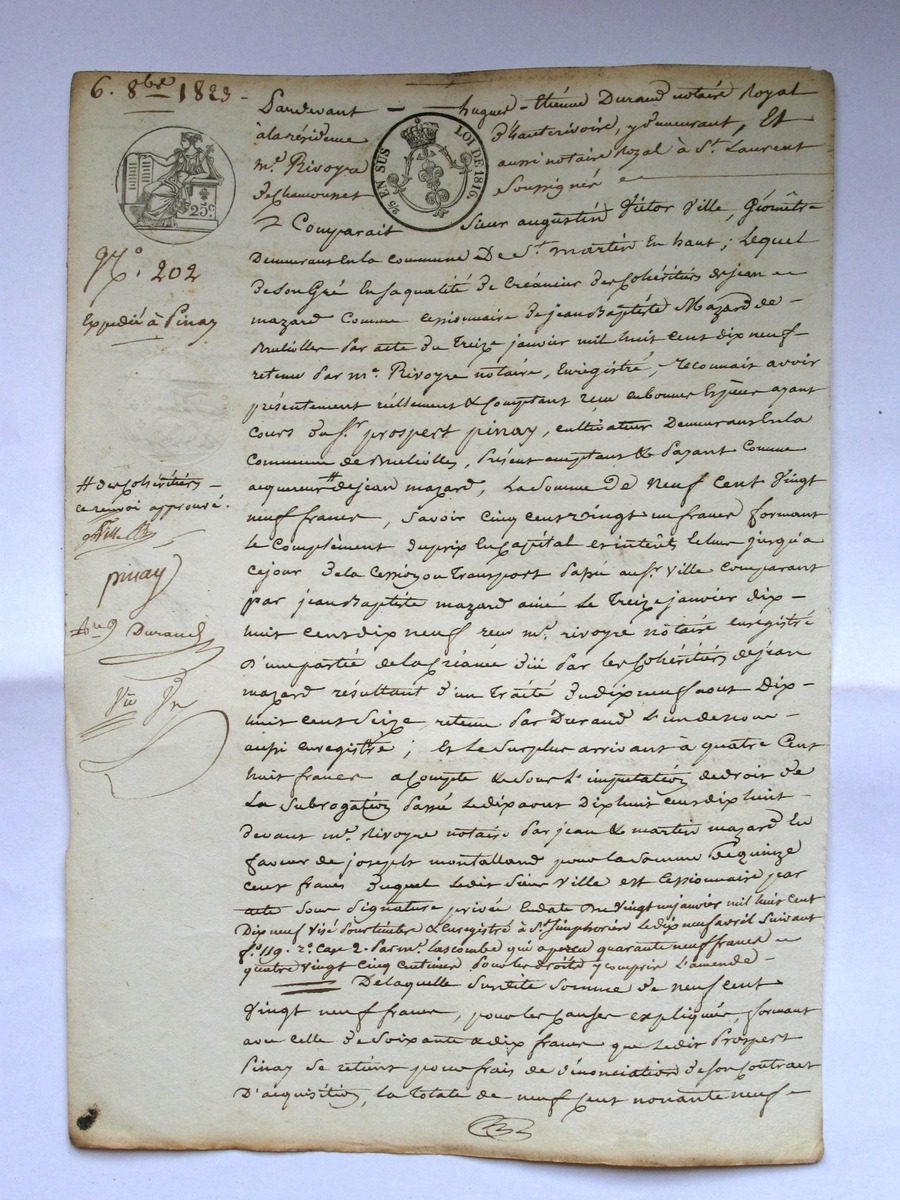 6. 8bre 1823 -
Pardevant — hugues-Etiénne Durand notaire Royal
à la résidence D'hauterivoire, y demeurant, Et
Me. Rivoyre aussi notaire royal à St. Laurent
De Chamousset Soussignés
2/5 EN SUS
LOI DE 1816.
25c.
Comparait Sieur augustin Victor Ville, Géomêtre
Demeurant En la commune De St. martin En haut; Lequel
de Son Gré En sa qualité de Créancier des Cohéritiers de jean
mazard Comme Cessionnaire de jean Baptiste Mazard de -
Brulioles par acte du Treize janvier mil huit cent dix neuf
retenu par me. Rivoyre notaire, Enregistré, reconnait avoir
présentement réellement & Comptant reçu en bonnes Espèces ayant
cours du sr. prospert pinay, cultivateur Demeurant En la
Commune de Brulioles, présent acceptant & payant Comme
acquereur # de jean mazard, La Somme De neuf Cent Vingt
neuf francs, Savoir Cinq cent vingt un francs formant
le Complément du prix En Capital et intérêts échus jusqu'à
ce jour de la Cession ou Transport passé au sr. Ville Comparant
par jean Baptiste mazard ainé le Treize janvier dix -
huit cent dix neuf reçu me. rivoyre notaire enregistré
D'une partie de la Créance due par les Cohéritiers de jean
mazard résultant d'un Traité du dix neuf aout Dix -
huit cent Seize retenu par Durand l'un de nous -
aussi enregistré; Et le Surplus arrivant à quatre Cent
huit francs acompte & sous l'imputation de droit de
La Subrogation passée le dix aout Dix huit cent dix huit -
devant me. Rivoyre notaire par jean & martin mazard En
faveur de joseph montalland pour la Somme De quinze
cent francs duquel ledit Sieur Ville est Cessionnaire par
acte Sous Signature privée En date du Vingt un janvier mil huit Cent
Dix neuf visé pour timbre & Enregistré à St. Simphorien le dix neuf avril Suivant
fo. 119. ro. Case 2. par mr. Lascombe qui a perçu quarante neuf francs
quatre vingt cinq centimes pour les droits y compris l'amende -
De laquelle Susdite Somme de neuf cent
Vingt neuf francs, pour les Causes expliquées, formant
avec celle de Soixante & dix francs que ledit Prospert
Pinay Se retient pour frais de dénonciation de Son Contract
D'acquisition, la totale de neuf Cent nonante neuf -
No. 202
Expedié à Pinay
# des Cohéritiers -
ce renvoi approuvé.
Ville
pinay
Durand